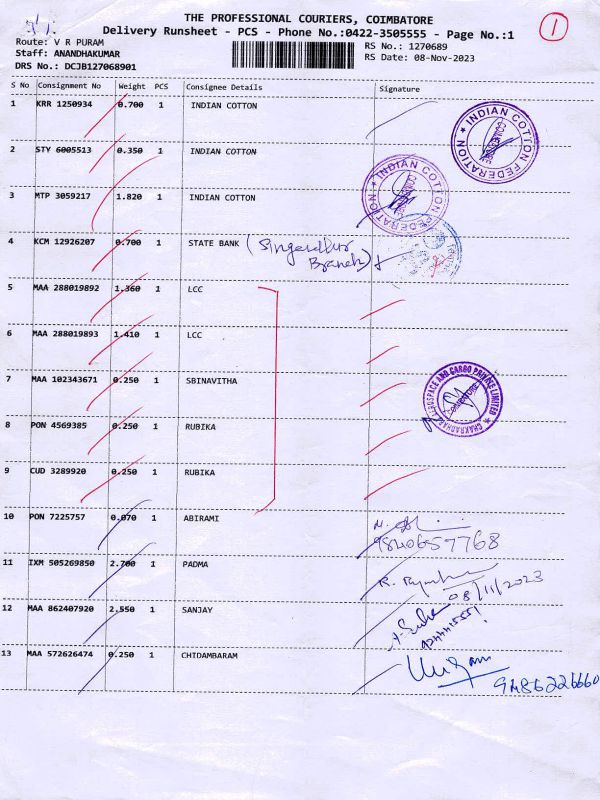 THE PROFESSIONAL COURIERS, COIMBATORE
Delivery Runsheet - PCS - Phone No.:0422-3505555 - Page No.:1
1
Route: V R PURAM
Staff: ANANDHAKUMAR
DRS No.: DCJB127068901
RS No.: 1270689
RS Date: 08-Nov-2023
S No Consignment No Weight PCS Consignee Details Signature
1 KRR 1250934 0.700 1 INDIAN COTTON
2 STY 6005513 0.350 1 INDIAN COTTON
3 MTP 3059217 1.820 1 INDIAN COTTON
4 KCM 12926207 0.700 1 STATE BANK (Singanallur
Branch)
5 MAA 288019892 1.360 1 LCC
6 MAA 288019893 1.410 1 LCC
7 MAA 102343671 0.250 1 SBINAVITHA
8 PON 4569385 0.250 1 RUBIKA
9 CUD 3289920 0.250 1 RUBIKA
10 PON 7225757 0.070 1 ABIRAMI
9840657768
11 IXM 505269850 2.700 1 PADMA
08/11/2023
12 MAA 862407920 2.550 1 SANJAY
13 MAA 572626474 0.250 1 CHIDAMBARAM
9486226660
INDIAN COTTON FEDERATION
COIMBATORE
INDIAN COTTON FEDERATION
CHAKRADHAR AEROSPACE AND CARGO PRIVATE LIMITED
COIMBATORE